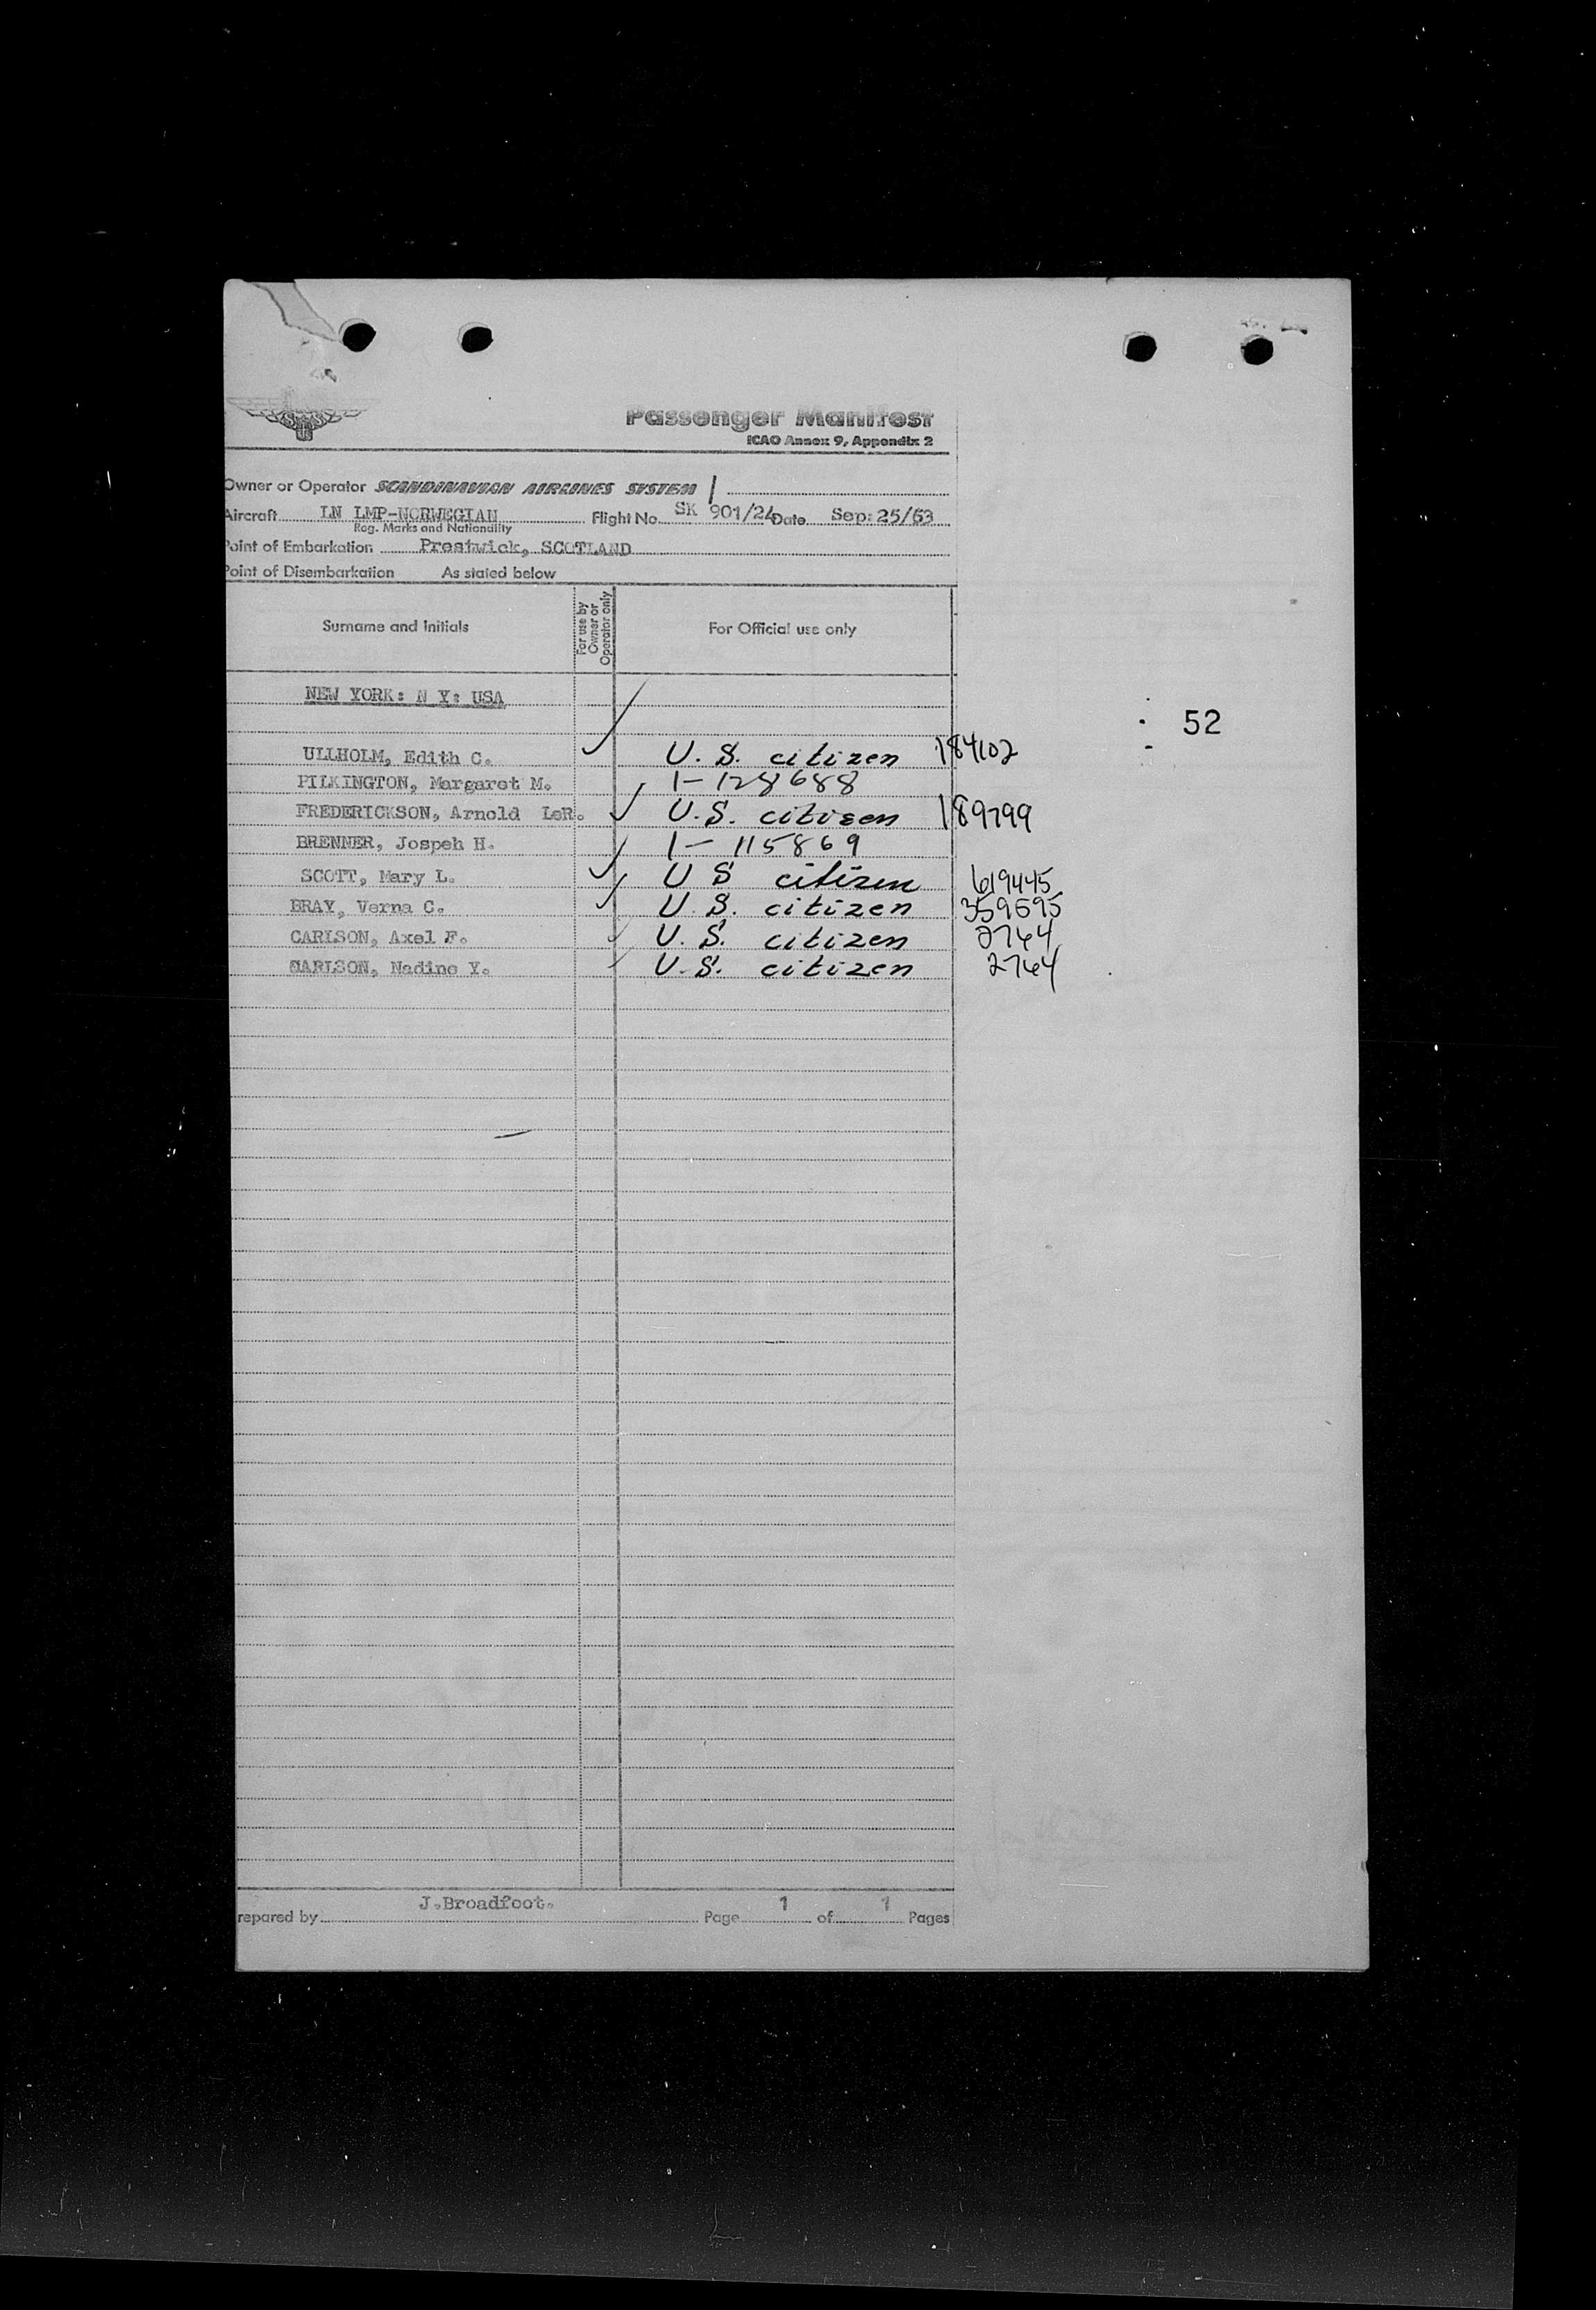 Passenger Manifest
ICAO Annex 9, Appendix 2
Owner or Operator SCANDINAVIAN AIRLINES SYSTEM
Aircraft LN LMP-NORWEGIAN Flight No. SK 901/24 Date Sep: 25/53
Reg. Marks and Nationality
Point of Embarkation Prestwick, SCOTLAND
Point of Disembarkation As stated below
Surname and initials For use by Owner or Operator only For Official use only
NEW YORK: N Y: USA
52
ULLHOLM, Edith C. U. S. citizen 184102
PILKINGTON, Margaret M. 1- 128688
FREDERICKSON, Arnold LeR. U.S. citizen 189799
BRENNER, Jospeh H. 1- 115869
SCOTT, Mary L. U S citizen 619445
BRAY, Verna C. U. S. citizen 359595
CARLSON, Axel F. U. S. citizen 2764
CARLSON, Nadine Y. U. S. citizen 2764
repared by J.Broadfoot. Page 1 of 1 Pages